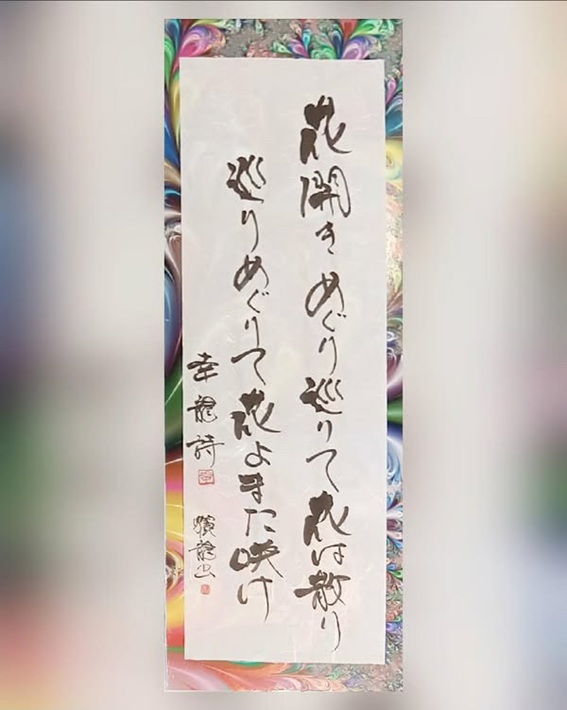 花開きめぐり巡りて花は散り
巡りめぐりて花よまた咲け
幸龍詩
龍